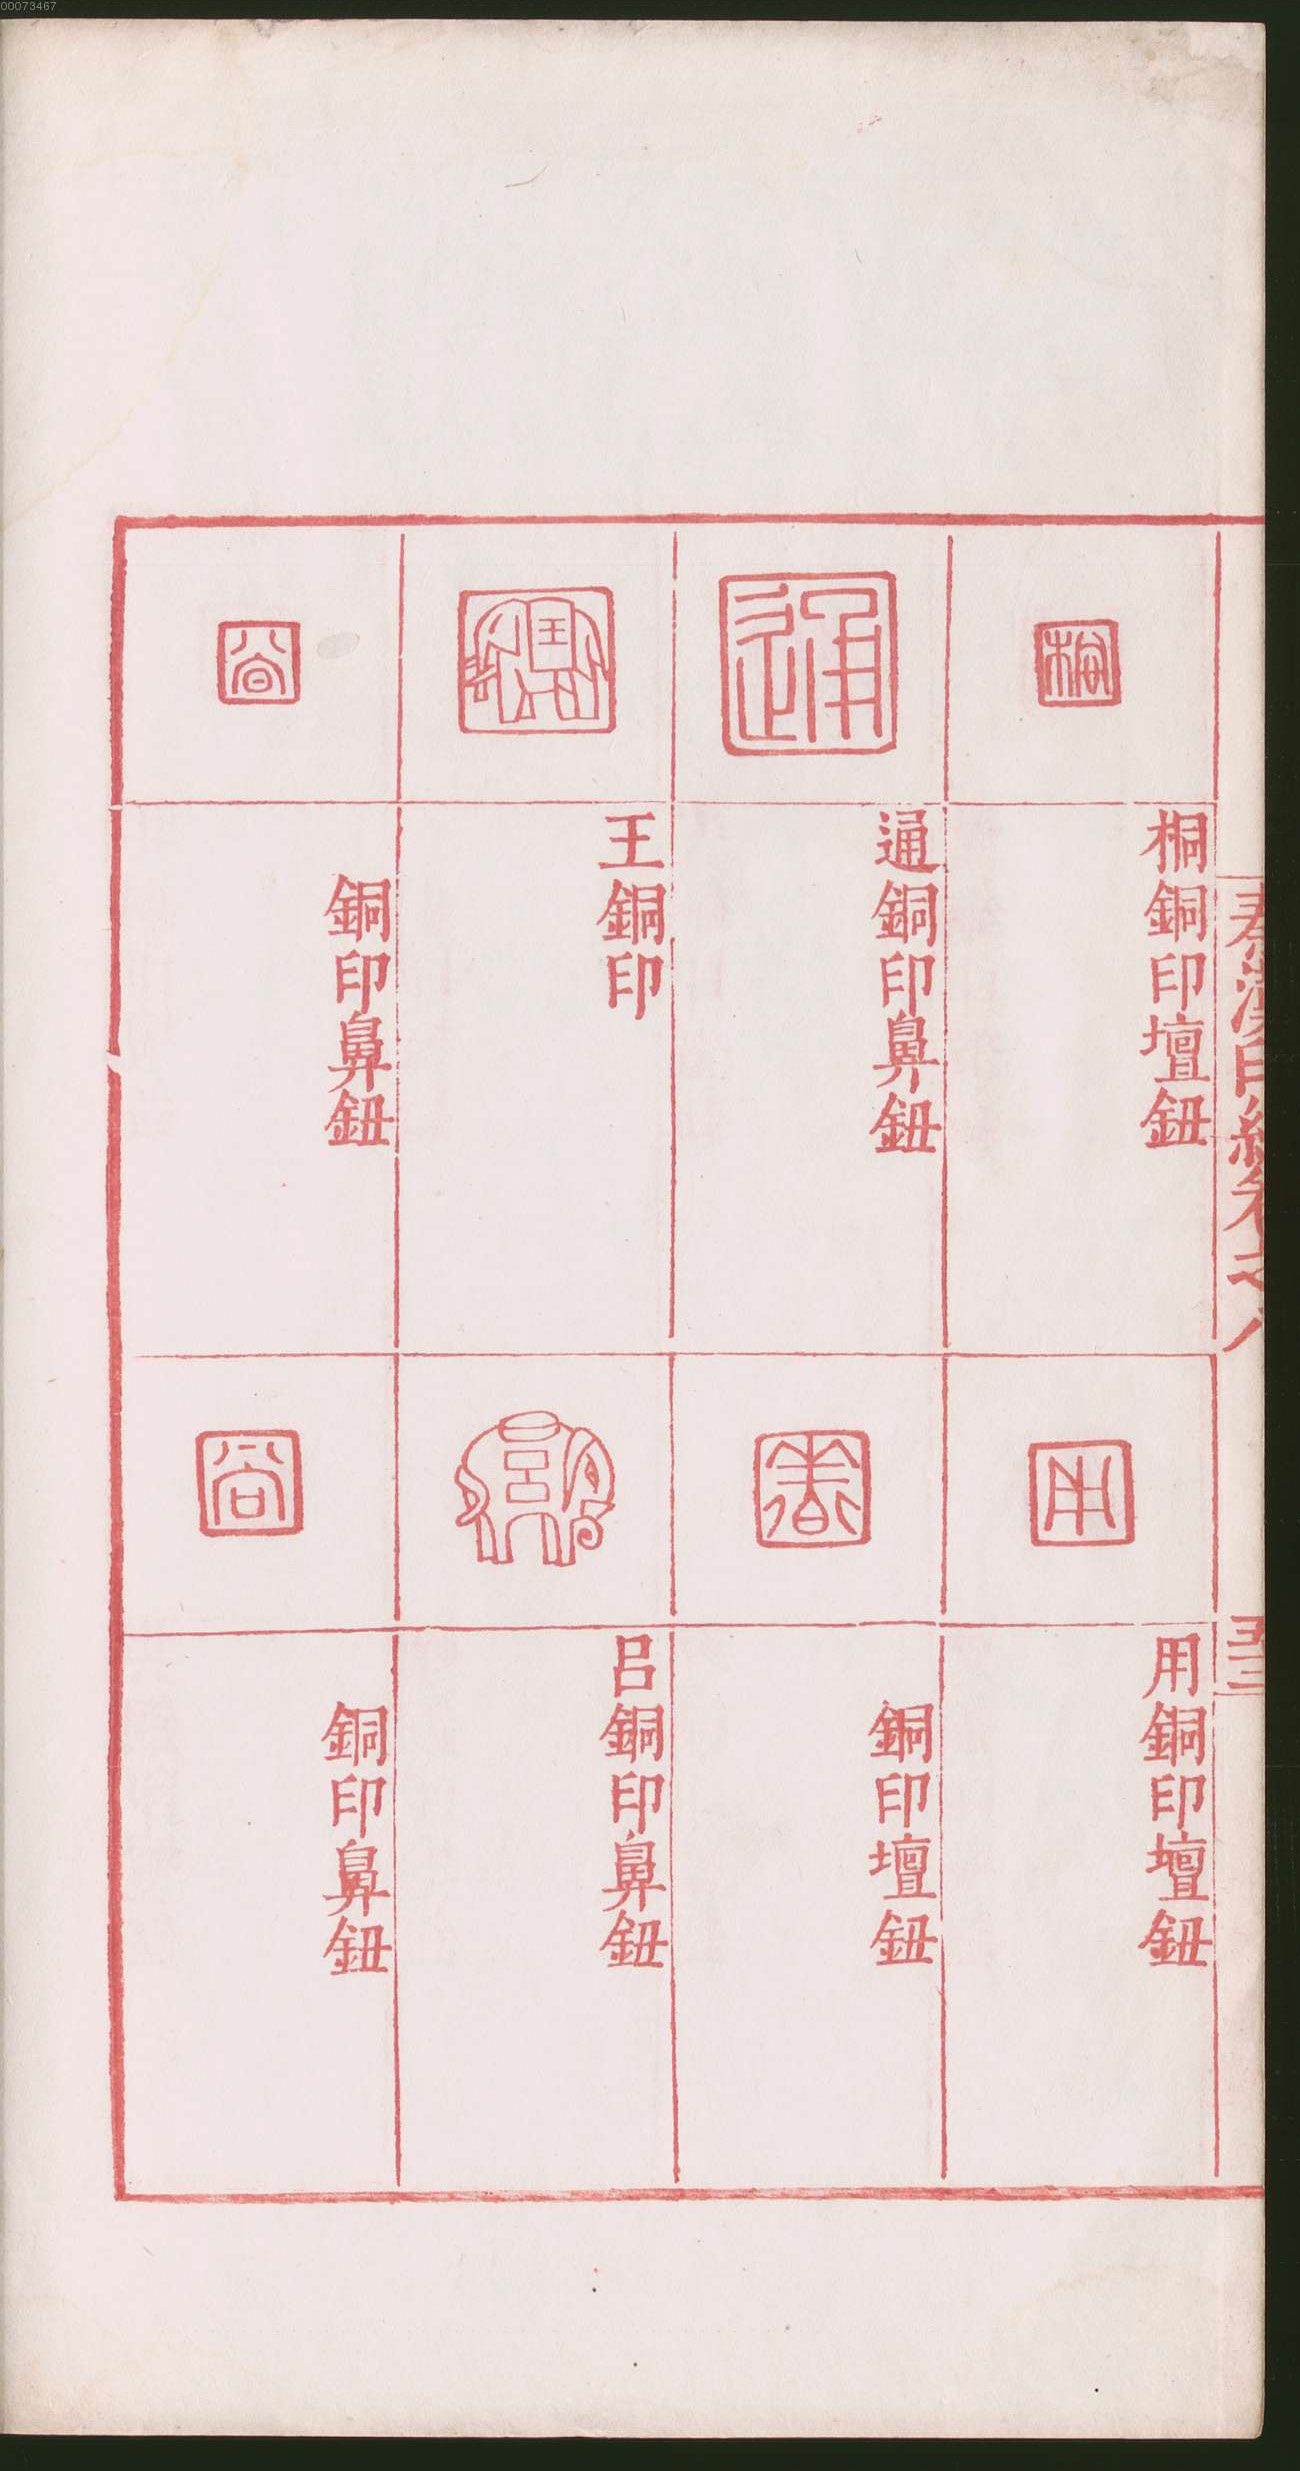 00073467
秦漢印統卷之八
五三
桐
桐銅印壇鈕
通
通銅印鼻鈕
王
王銅印
銅印鼻鈕
用
用銅印壇鈕
銅印壇鈕
呂
呂銅印鼻鈕
銅印鼻鈕